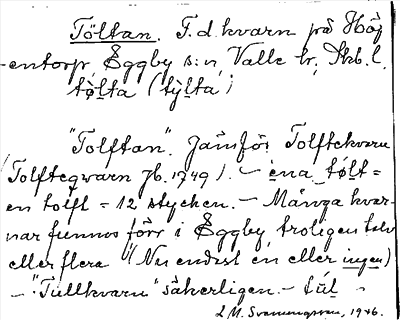 Töltan. F.d. kvarn på Höj
-entorp Eggby s:n, Valle hr, Skb.l.
tø̀lta (tỳlta)
"Tolftan". Jämför Tolftekvarn
(Tolfteqvarn Jb. 1749). – ena tø̀lt =
en tolft = 12 stycken. – Många kvar-
nar funnos förr i Eggby troligen tolv
eller flera (Nu endast en eller ingen)
– "Tullkvarn" säkerligen. –
L.M. 1946.